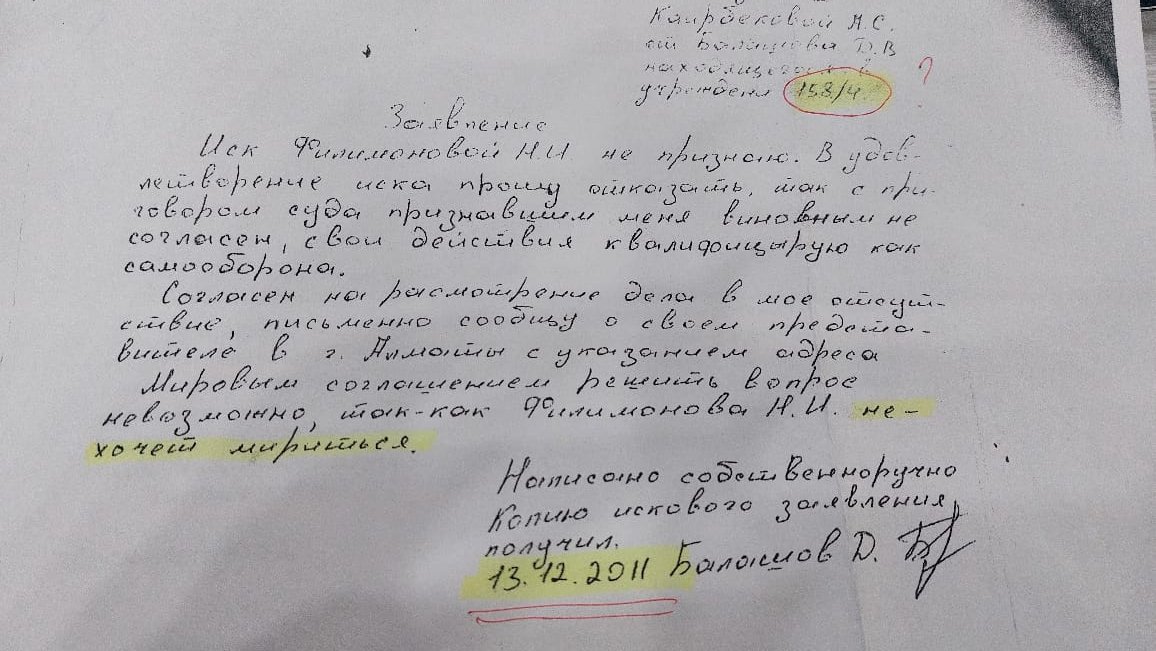 Каирбековой А.С.
от Балашова Д.В
находящегося в
учрежден 158/4 ?
Заявление
Иск Филимоновой Н.И не признаю. В удов-
летворение иска прошу отказать, так с при-
говором суда признавшим меня виновным не
согласен, свои действия квалифицырую как
самооборона.
Согласен на расмотрение дела в мое отсут-
ствие, письменно сообщу о своем предста-
вителе в г. Алматы с указанием адреса
Мировым соглашением решить вопрос
невозможно, так-как Филимонова Н.И. не-
хочет мириться.
Написано собственноручно
Копию искового заявления
получил.
13.12.2011 Балашов Д.